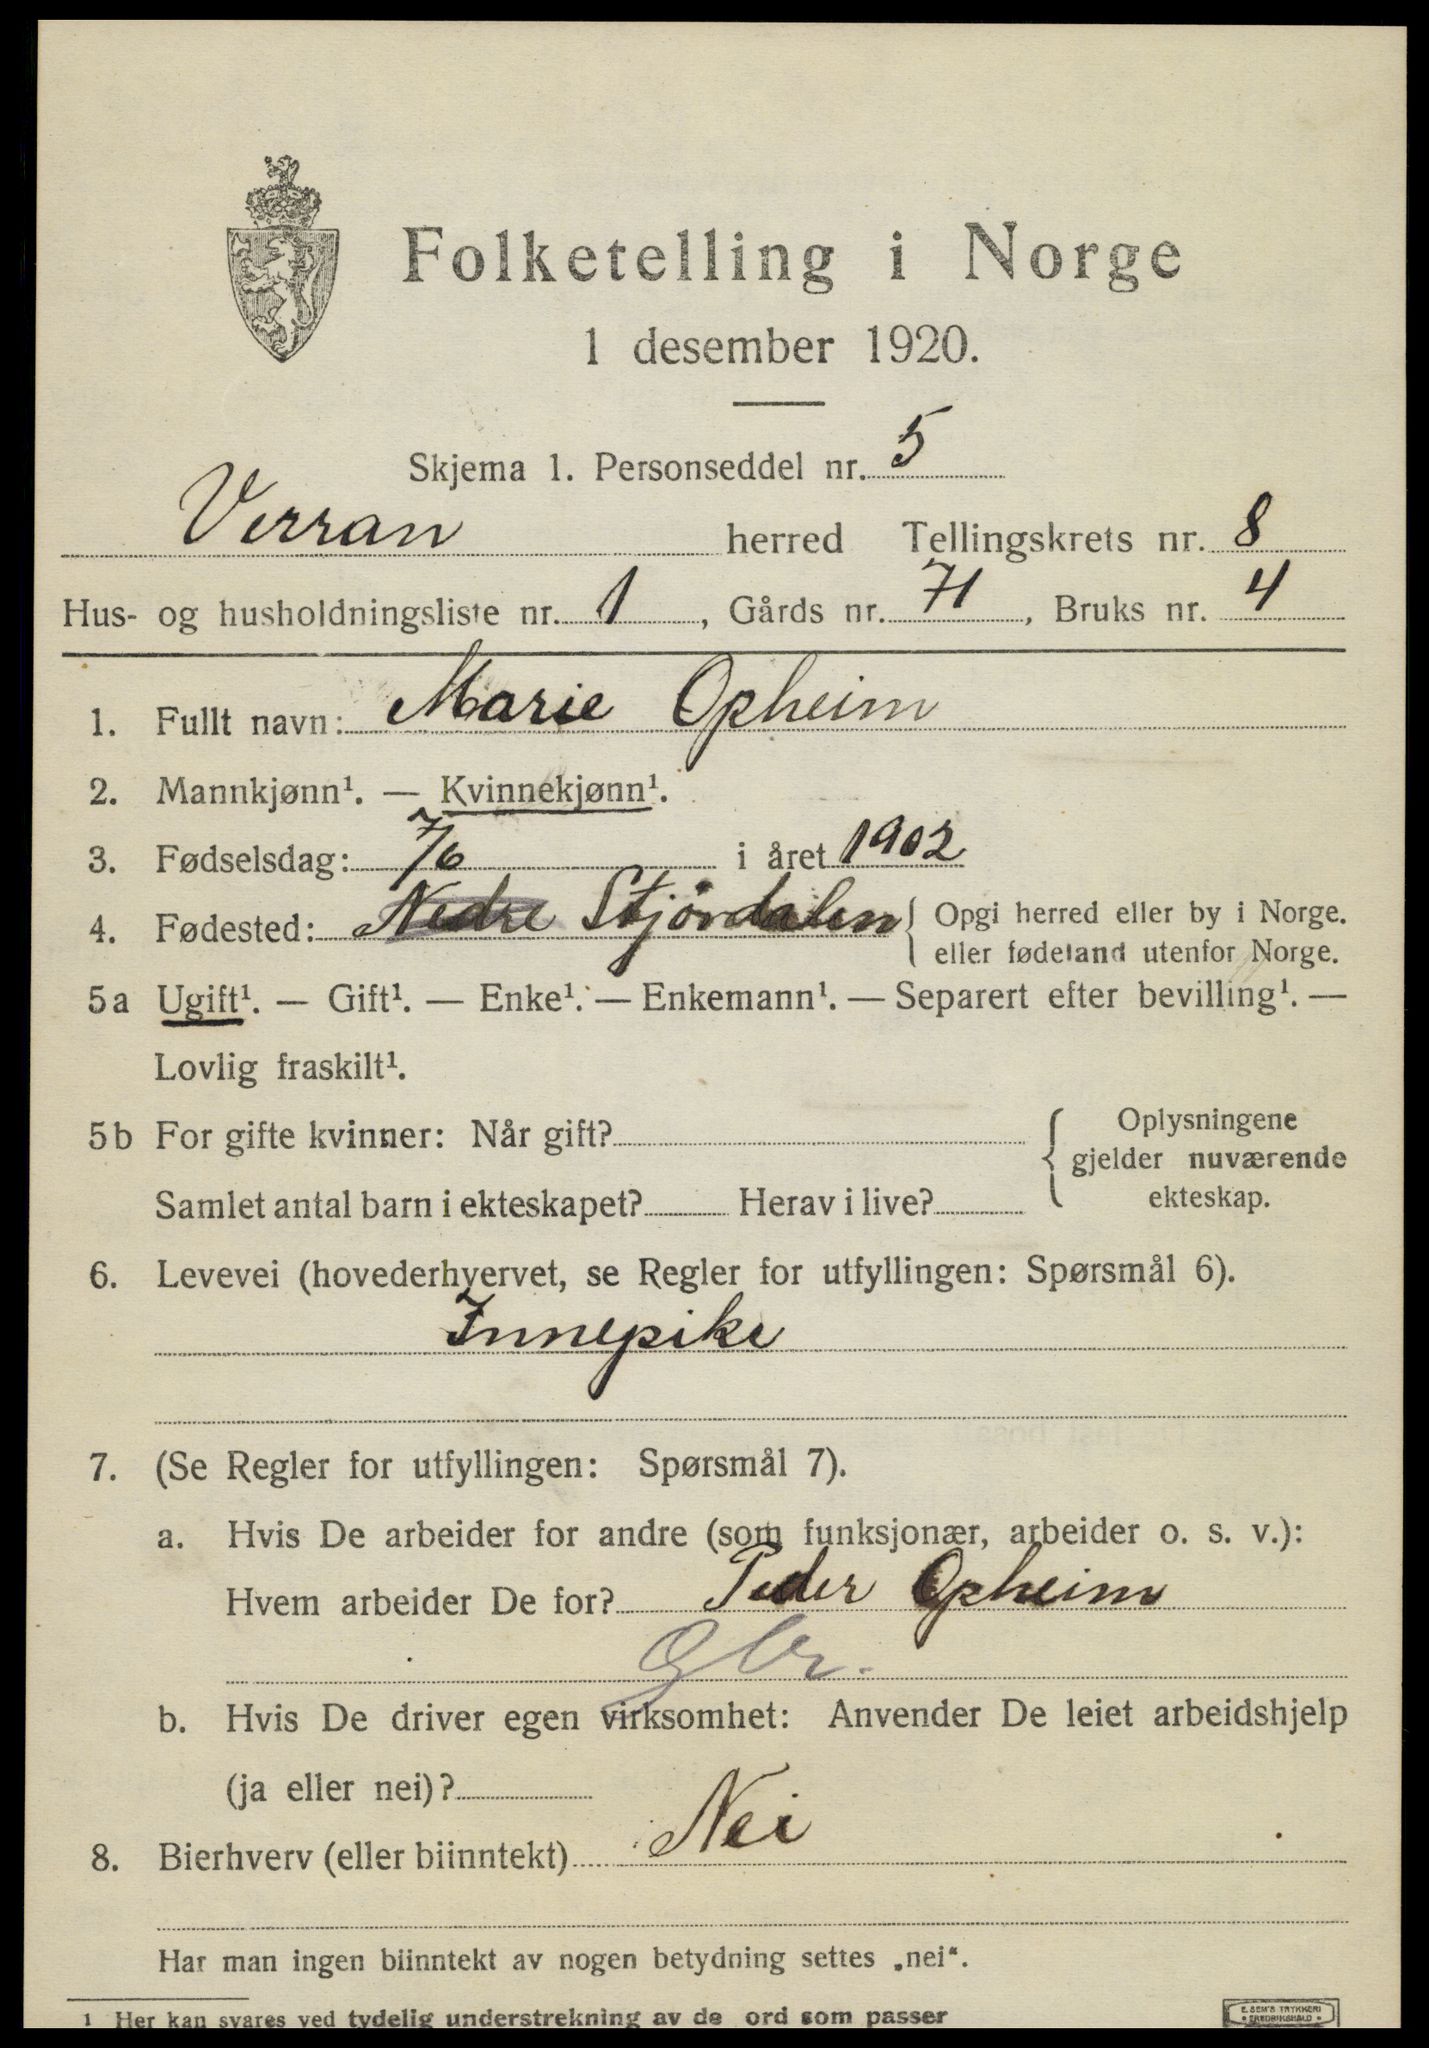 Folketelling i Norge
1 desember 1920.
Skjema 1. Personseddel nr. 5
Verran herred Tellingskrets nr. 8
Hus- og husholdningsliste nr. 1, Gårds nr. 71, Bruks nr. 4
1. Fullt navn: Marie Opheim
2. Mannkjønn¹. — Kvinnekjønn¹.
3. Fødselsdag: 7/6 i året 1902
4. Fødested: Nedre Stjördalen { Opgi herred eller by i Norge.
eller fødeland utenfor Norge.
5a Ugift¹. — Gift¹. — Enke¹. — Enkemann¹. — Separert efter bevilling¹. —
Lovlig fraskilt¹.
5b For gifte kvinner: Når gift? { Oplysningene
gjelder nuværende
Samlet antal barn i ekteskapet? Herav i live? ekteskap.
6. Levevei (hovederhvervet, se Regler for utfyllingen: Spørsmål 6).
Innepike
7. (Se Regler for utfyllingen: Spørsmål 7).
a. Hvis De arbeider for andre (som funksjonær, arbeider o. s. v.):
Hvem arbeider De for? Peder Opheim
Gbr.
b. Hvis De driver egen virksomhet: Anvender De leiet arbeidshjelp
(ja eller nei)?
8. Bierhverv (eller biinntekt) Nei
Har man ingen biinntekt av nogen betydning settes „nei“.
1 Her kan svares ved tydelig understrekning av de ord som passer
E. SEM'S TRYKKERI
FREDRIKSHALD